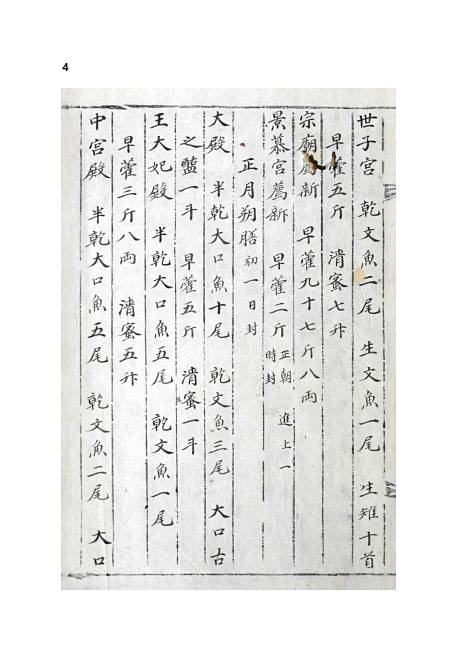 4
世子宮 乾文魚二尾 生文魚一尾 生雉十首
早藿五斤 清蜜七升
宗廟薦新 早藿九十七斤八両
景慕宮薦新 早藿二斤 正朝 進上一
時封
正月朔膳 初一日封
大殿 半乾大口魚十尾 乾文魚三尾 大口古
之䀋一斗 早藿五斤 清蜜一斗
王大妃殿 半乾大口魚五尾 乾文魚一尾
早藿三斤八両 清蜜五升
中宮殿 半乾大口魚五尾 乾文魚二尾 大口